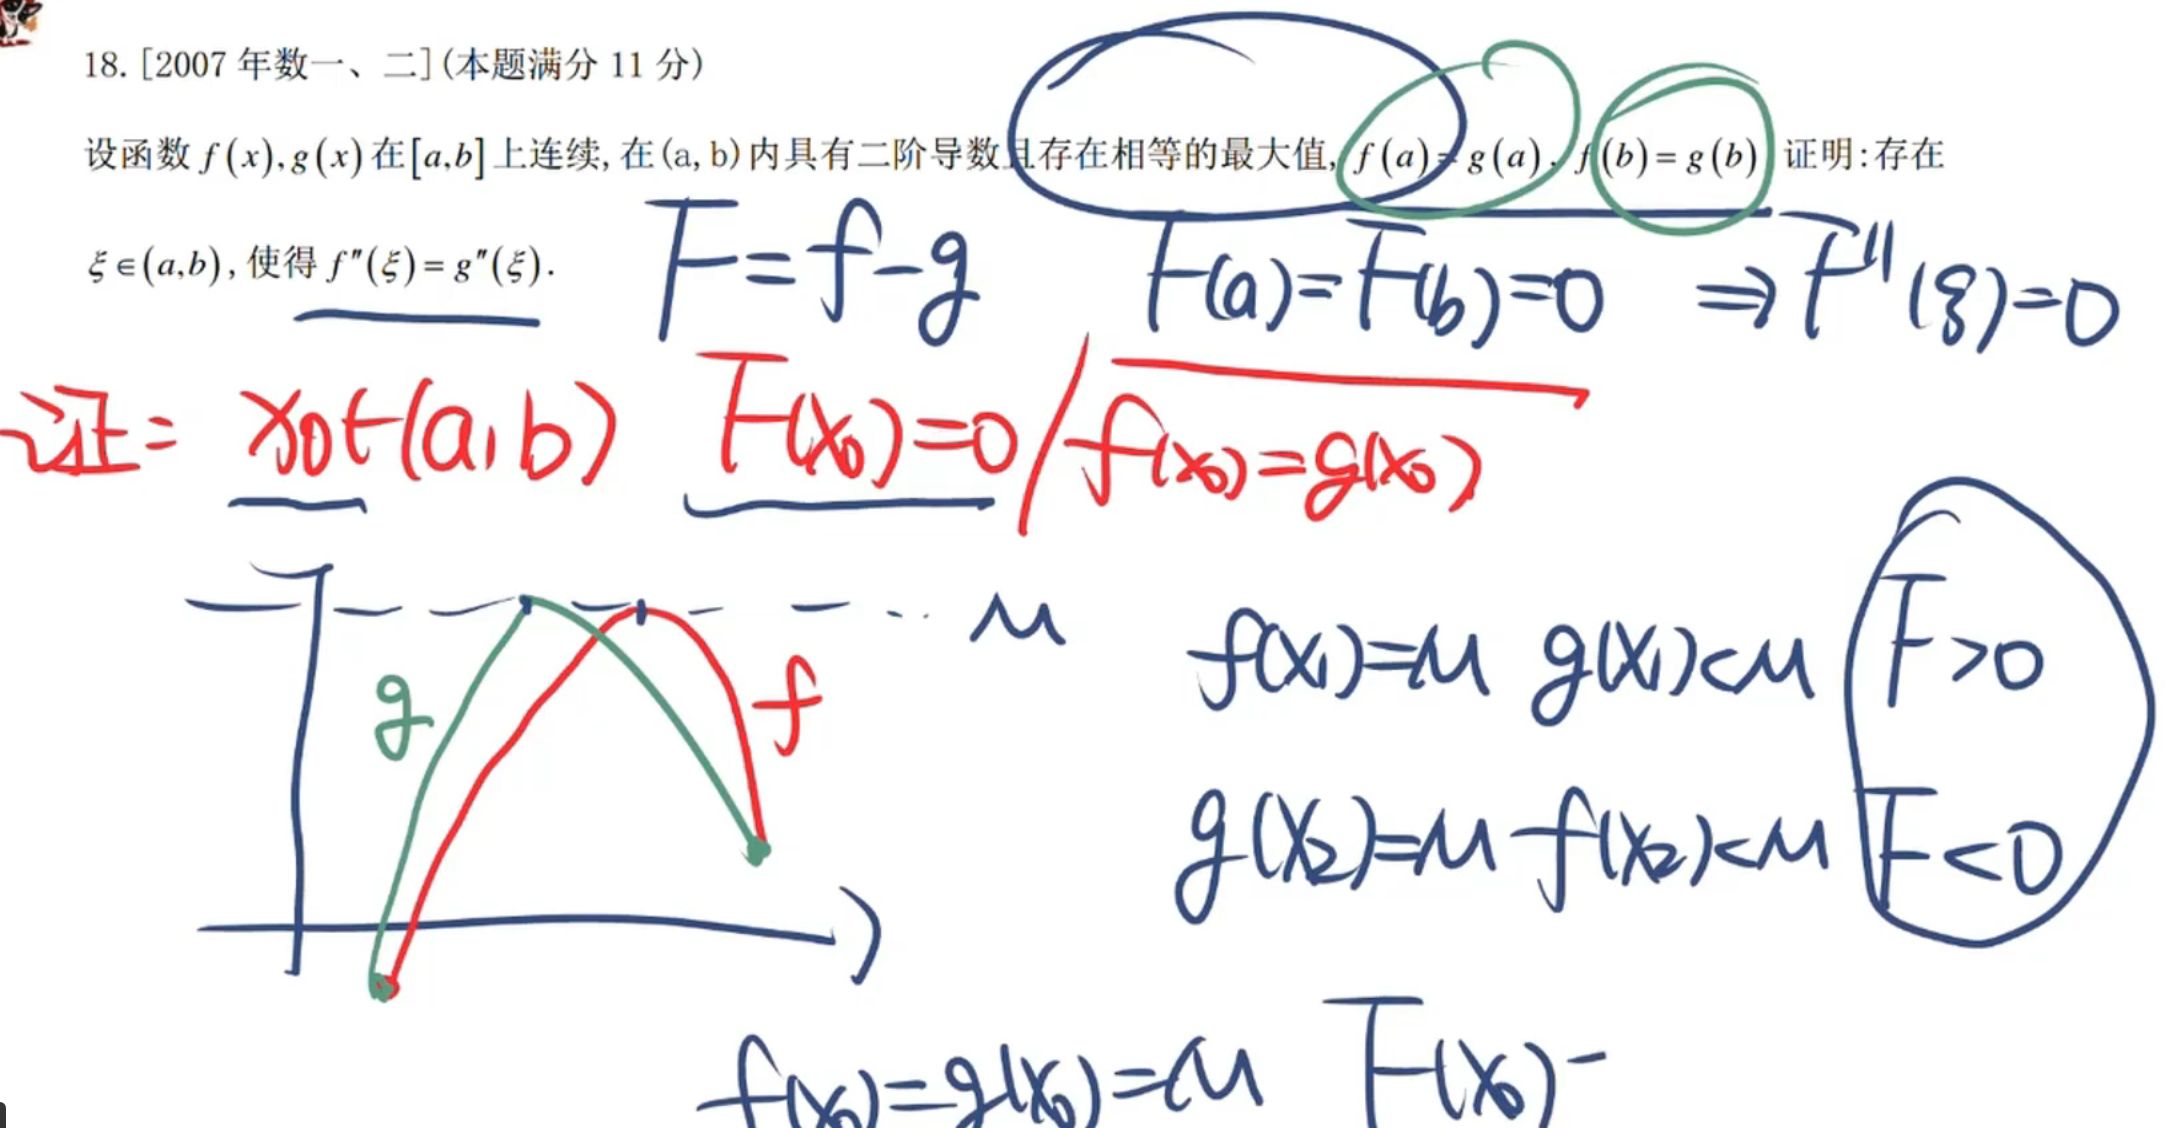 18. [2007 年数一、二] (本题满分 11 分)
设函数 f(x), g(x) 在 [a,b] 上连续, 在 (a,b) 内具有二阶导数且存在相等的最大值, f(a) = g(a), f(b) = g(b) 证明: 存在
ξ∈(a,b), 使得 f″(ξ) = g″(ξ).
F=f-g F(a)=F(b)=0 ⇒ F″(ξ)=0
证: x₀∈(a,b) F(x₀)=0 / f(x₀)=g(x₀)
M
g f
f(x₁)=M g(x₁)<M F>0
g(x₂)=M f(x₂)<M F<0
f(x₀)=g(x₀)=M F(x₀)-